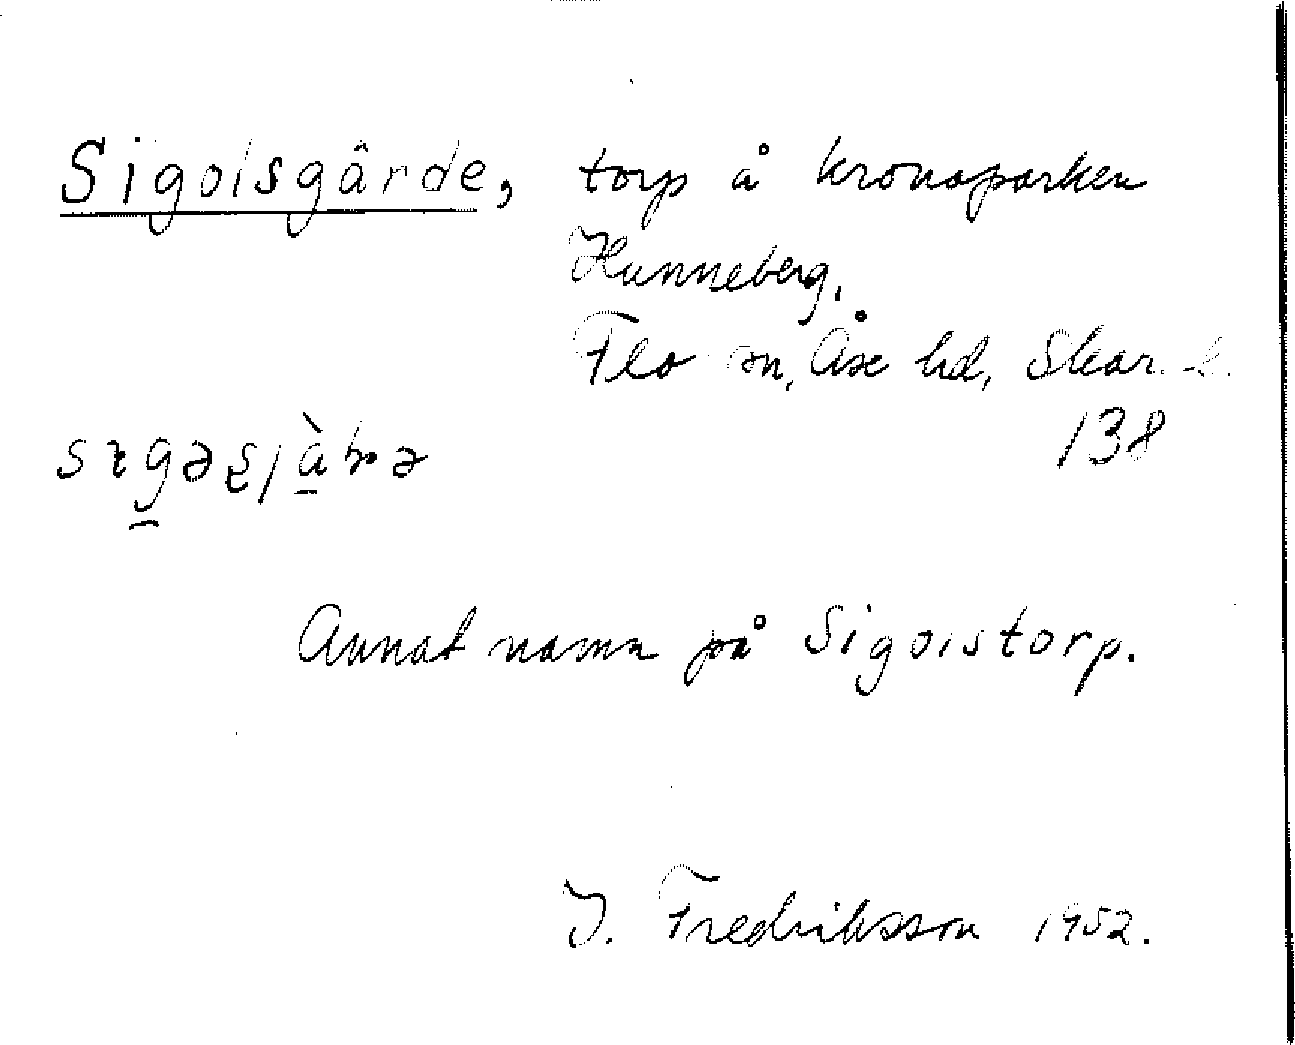 Sigolsgârde, torp å kronoparken
Hunneberg.
Flo sn, Åse hd, Skar. l.
138
Annat namn på Sigolstorp.
J. Fredriksson 1952.